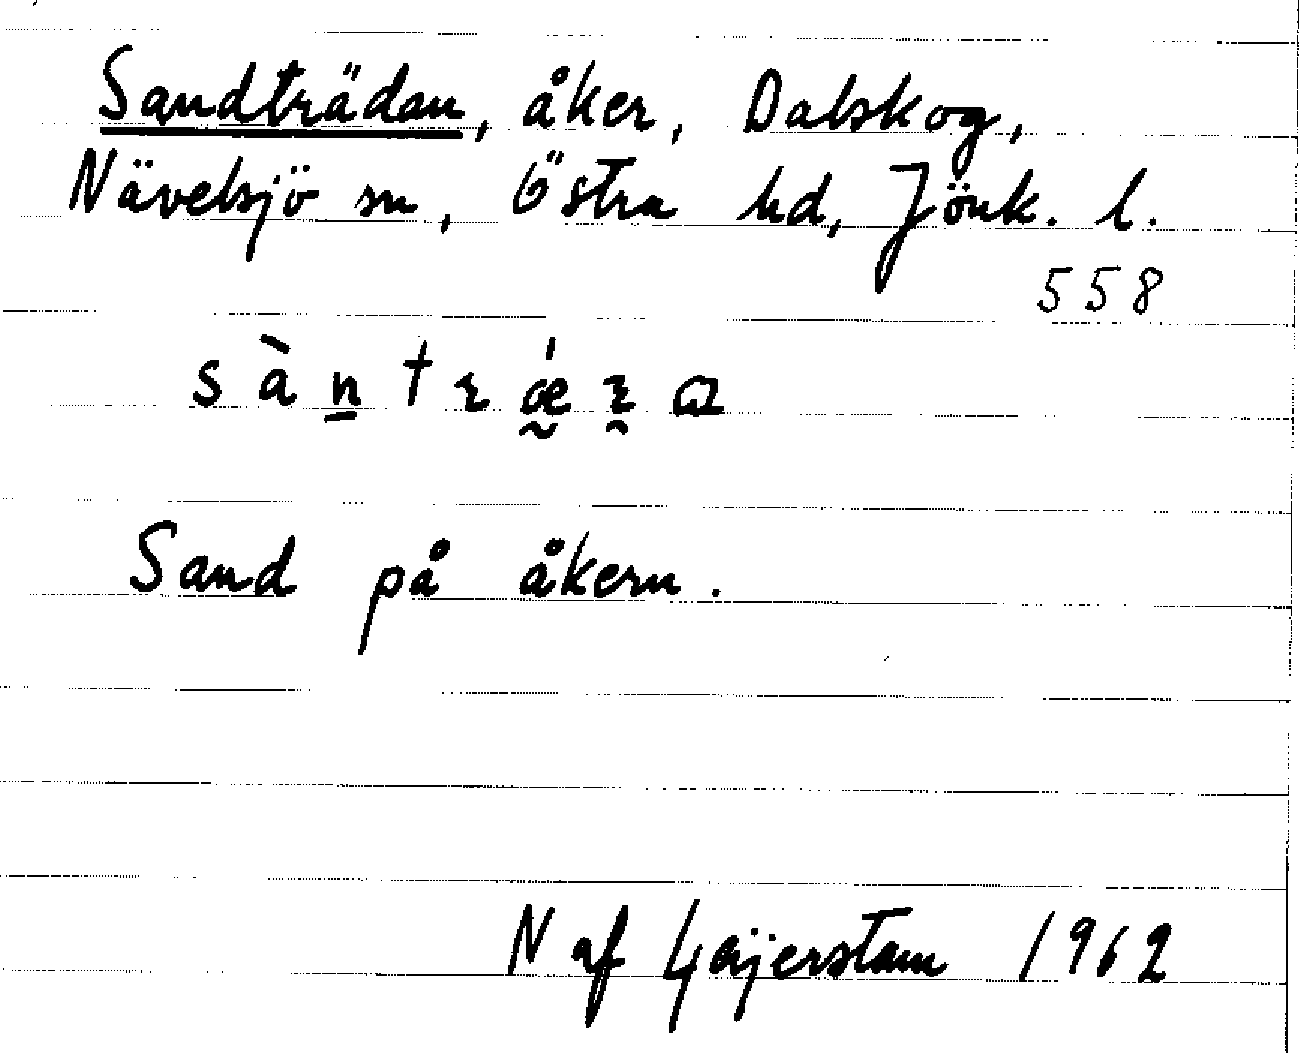 Sandträdan, åker, Dalskog,
Nävelsjö sn, Östra hd, Jönk. l.
558
Sand på åkern.
N af Geijerstam 1962